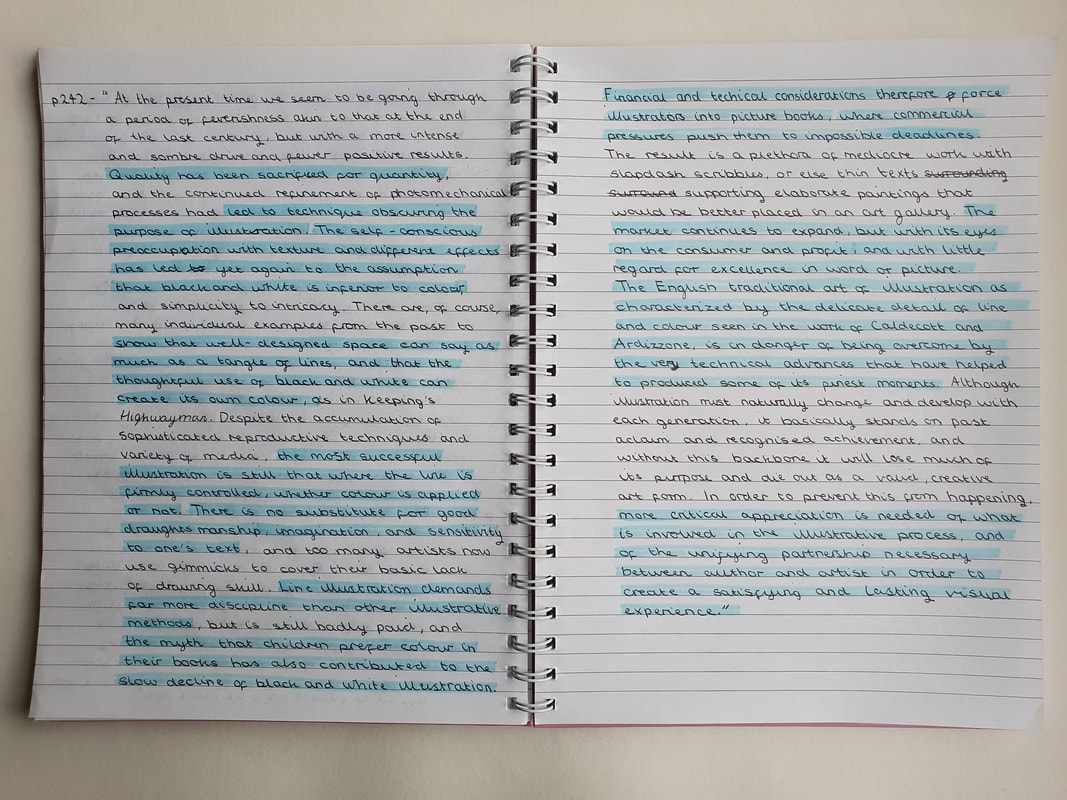 p242 - "At the present time we seem to be going through
a period of feverishness akin to that at the end
of the last century, but with a more intense
and sombre drive and fewer positive results.
Quality has been sacrificed for quantity,
and the continued refinement of photomechanical
processes had led to technique obscuring the
purpose of illustration. The self-conscious
preoccupation with texture and different effects
has led to yet again to the assumption
that black and white is inferior to colour
and simplicity to intricacy. There are, of course,
many individual examples from the past to
show that well-designed space can say as
much as a tangle of lines, and that the
thoughtful use of black and white can
create its own colour, as in Keeping's
Highwayman. Despite the accumulation of
sophisticated reproductive techniques and
variety of media, the most successful
illustration is still that where the line is
firmly controlled, whether colour is applied
or not. There is no substitute for good
draughtsmanship, imagination, and sensitivity
to one's text, and too many artists now
use gimmicks to cover their basic lack
of drawing skill. Line illustration demands
far more discipline than other illustrative
methods, but is still badly paid, and
the myth that children prefer colour in
their books has also contributed to the
slow decline of black and white illustration.
Financial and techical considerations therefore force
illustrators into picture books, where commercial
pressures push them to impossible deadlines.
The result is a plethora of mediocre work with
slapdash scribbles, or else thin texts surrounding
surround supporting elaborate paintings that
would be better placed in an art gallery. The
market continues to expand, but with its eyes
on the consumer and profit, and with little
regard for excellence in word or picture.
The English traditional art of illustration as
characterized by the delicate detail of line
and colour seen in the work of Caldecott and
Ardizzone is in danger of being overcome by
the very technical advances that have helped
to produced some of its finest moments. Although
illustration must naturally change and develop with
each generation, it basically stands on past
aclaim and recognised achievement, and
without this backbone it will lose much of
its purpose and die out as a valid, creative
art form. In order to prevent this from happening,
more critical appreciation is needed of what
is involved in the illustrative process, and
of the unifying partnership necessary
between author and artist in order to
create a satisfying and lasting visual
experience."